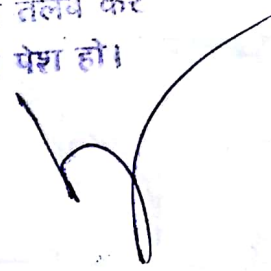 तलब कर
पेश हो।